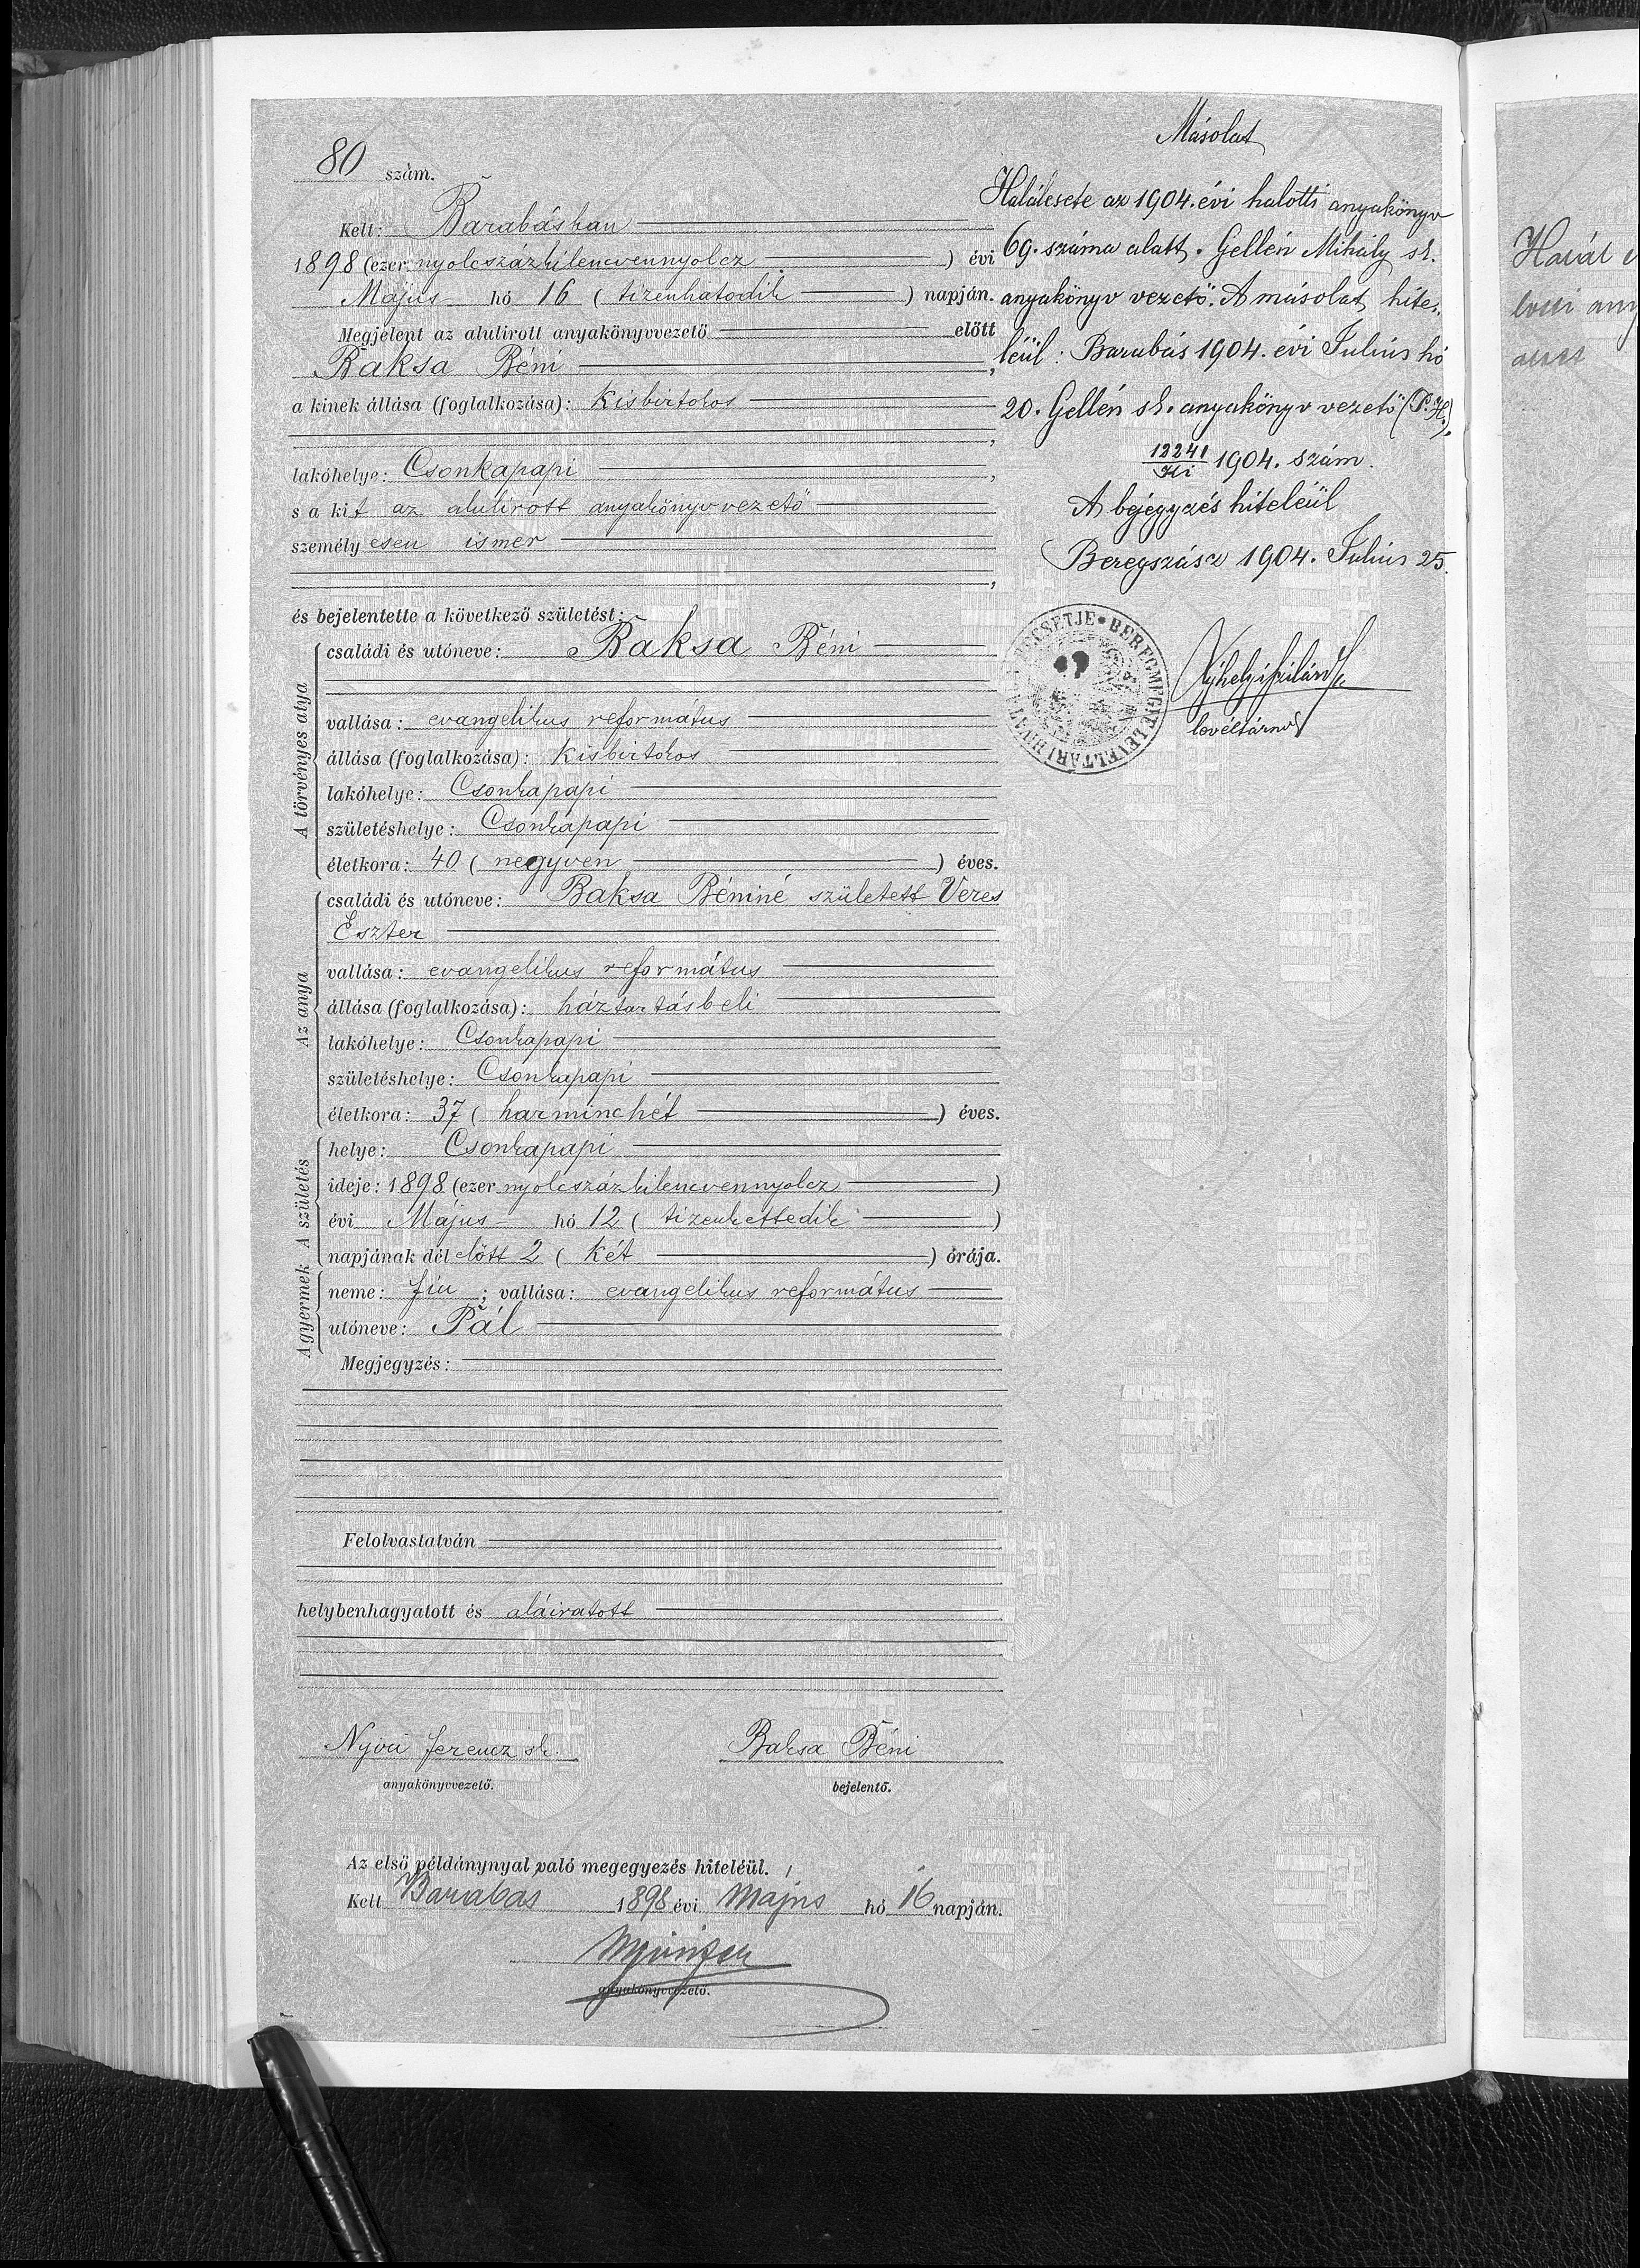 80 szám.
Kelt: Barabásban
1898 (ezer nyolcszázkilencvennyolcz) évi
Május hó 16 (tizenhatodik) napján.
Megjelent az alulirott anyakönyvvezető előtt
Baksa Béni,
a kinek állása (foglalkozása): kisbirtokos
,
lakóhelye: Csonkapapi,
s a kit az alulirott anyakönyvvezető
személyesen ismer
,
és bejelentette a következő születést:
A törvényes atya
családi és utóneve: Baksa Béni
vallása: evangelikus református
állása (foglalkozása): kisbirtokos
lakóhelye: Csonkapapi
születéshelye: Csonkapapi
életkora: 40 (negyven) éves.
Az anya
családi és utóneve: Baksa Béniné született Veres
Eszter
vallása: evangelikus református
állása (foglalkozása): háztartásbeli
lakóhelye: Csonkapapi
születéshelye: Csonkapapi
életkora: 37 (harminchét) éves.
A születés
helye: Csonkapapi
ideje: 1898 (ezer nyolcszázkilencvennyolcz)
évi Május hó 12 (tizenkettedik)
napjának dél előtt 2 (két) órája.
A gyermek
neme: fiu; vallása: evangelikus református
utóneve: Pál
Megjegyzés:
Felolvastatván
helybenhagyatott és aláiratott
Nyiri Ferencz sk. Baksa Béni
anyakönyvvezető. bejelentő.
Az első példánynyal való megegyezés hiteléül.
Kelt Barabás 1898 évi Május hó 16 napján.
anyakönyvvezető.
Másolat
Halálesete az 1904. évi halotti anyakönyv
69. száma alatt. Gellén Mihály sk.
anyakönyv vezető. A másolat hite-
léül: Barabás 1904. évi Július hó
20. Gellén sk. anyakönyv vezető (P. H.).
12241/Ki 1904. szám.
A bejegyzés hiteléül
Beregszász 1904. Július 25.
BEREGMEGYE LEVÉLTÁRI HIVATAL PECSÉTJE
levéltárnok